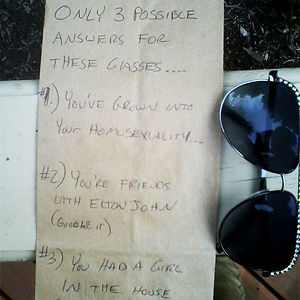 ONLY 3 POSSIBLE
ANSWERS FOR
THESE GLASSES....
#1.) YOU'VE GROWN INTO
YOUR HOMOSEXUALITY...
#2) YOU'RE FRIENDS
WITH ELTON JOHN
(GOOGLE IT)
#3) YOU HAD A GIRL
IN THE HOUSE